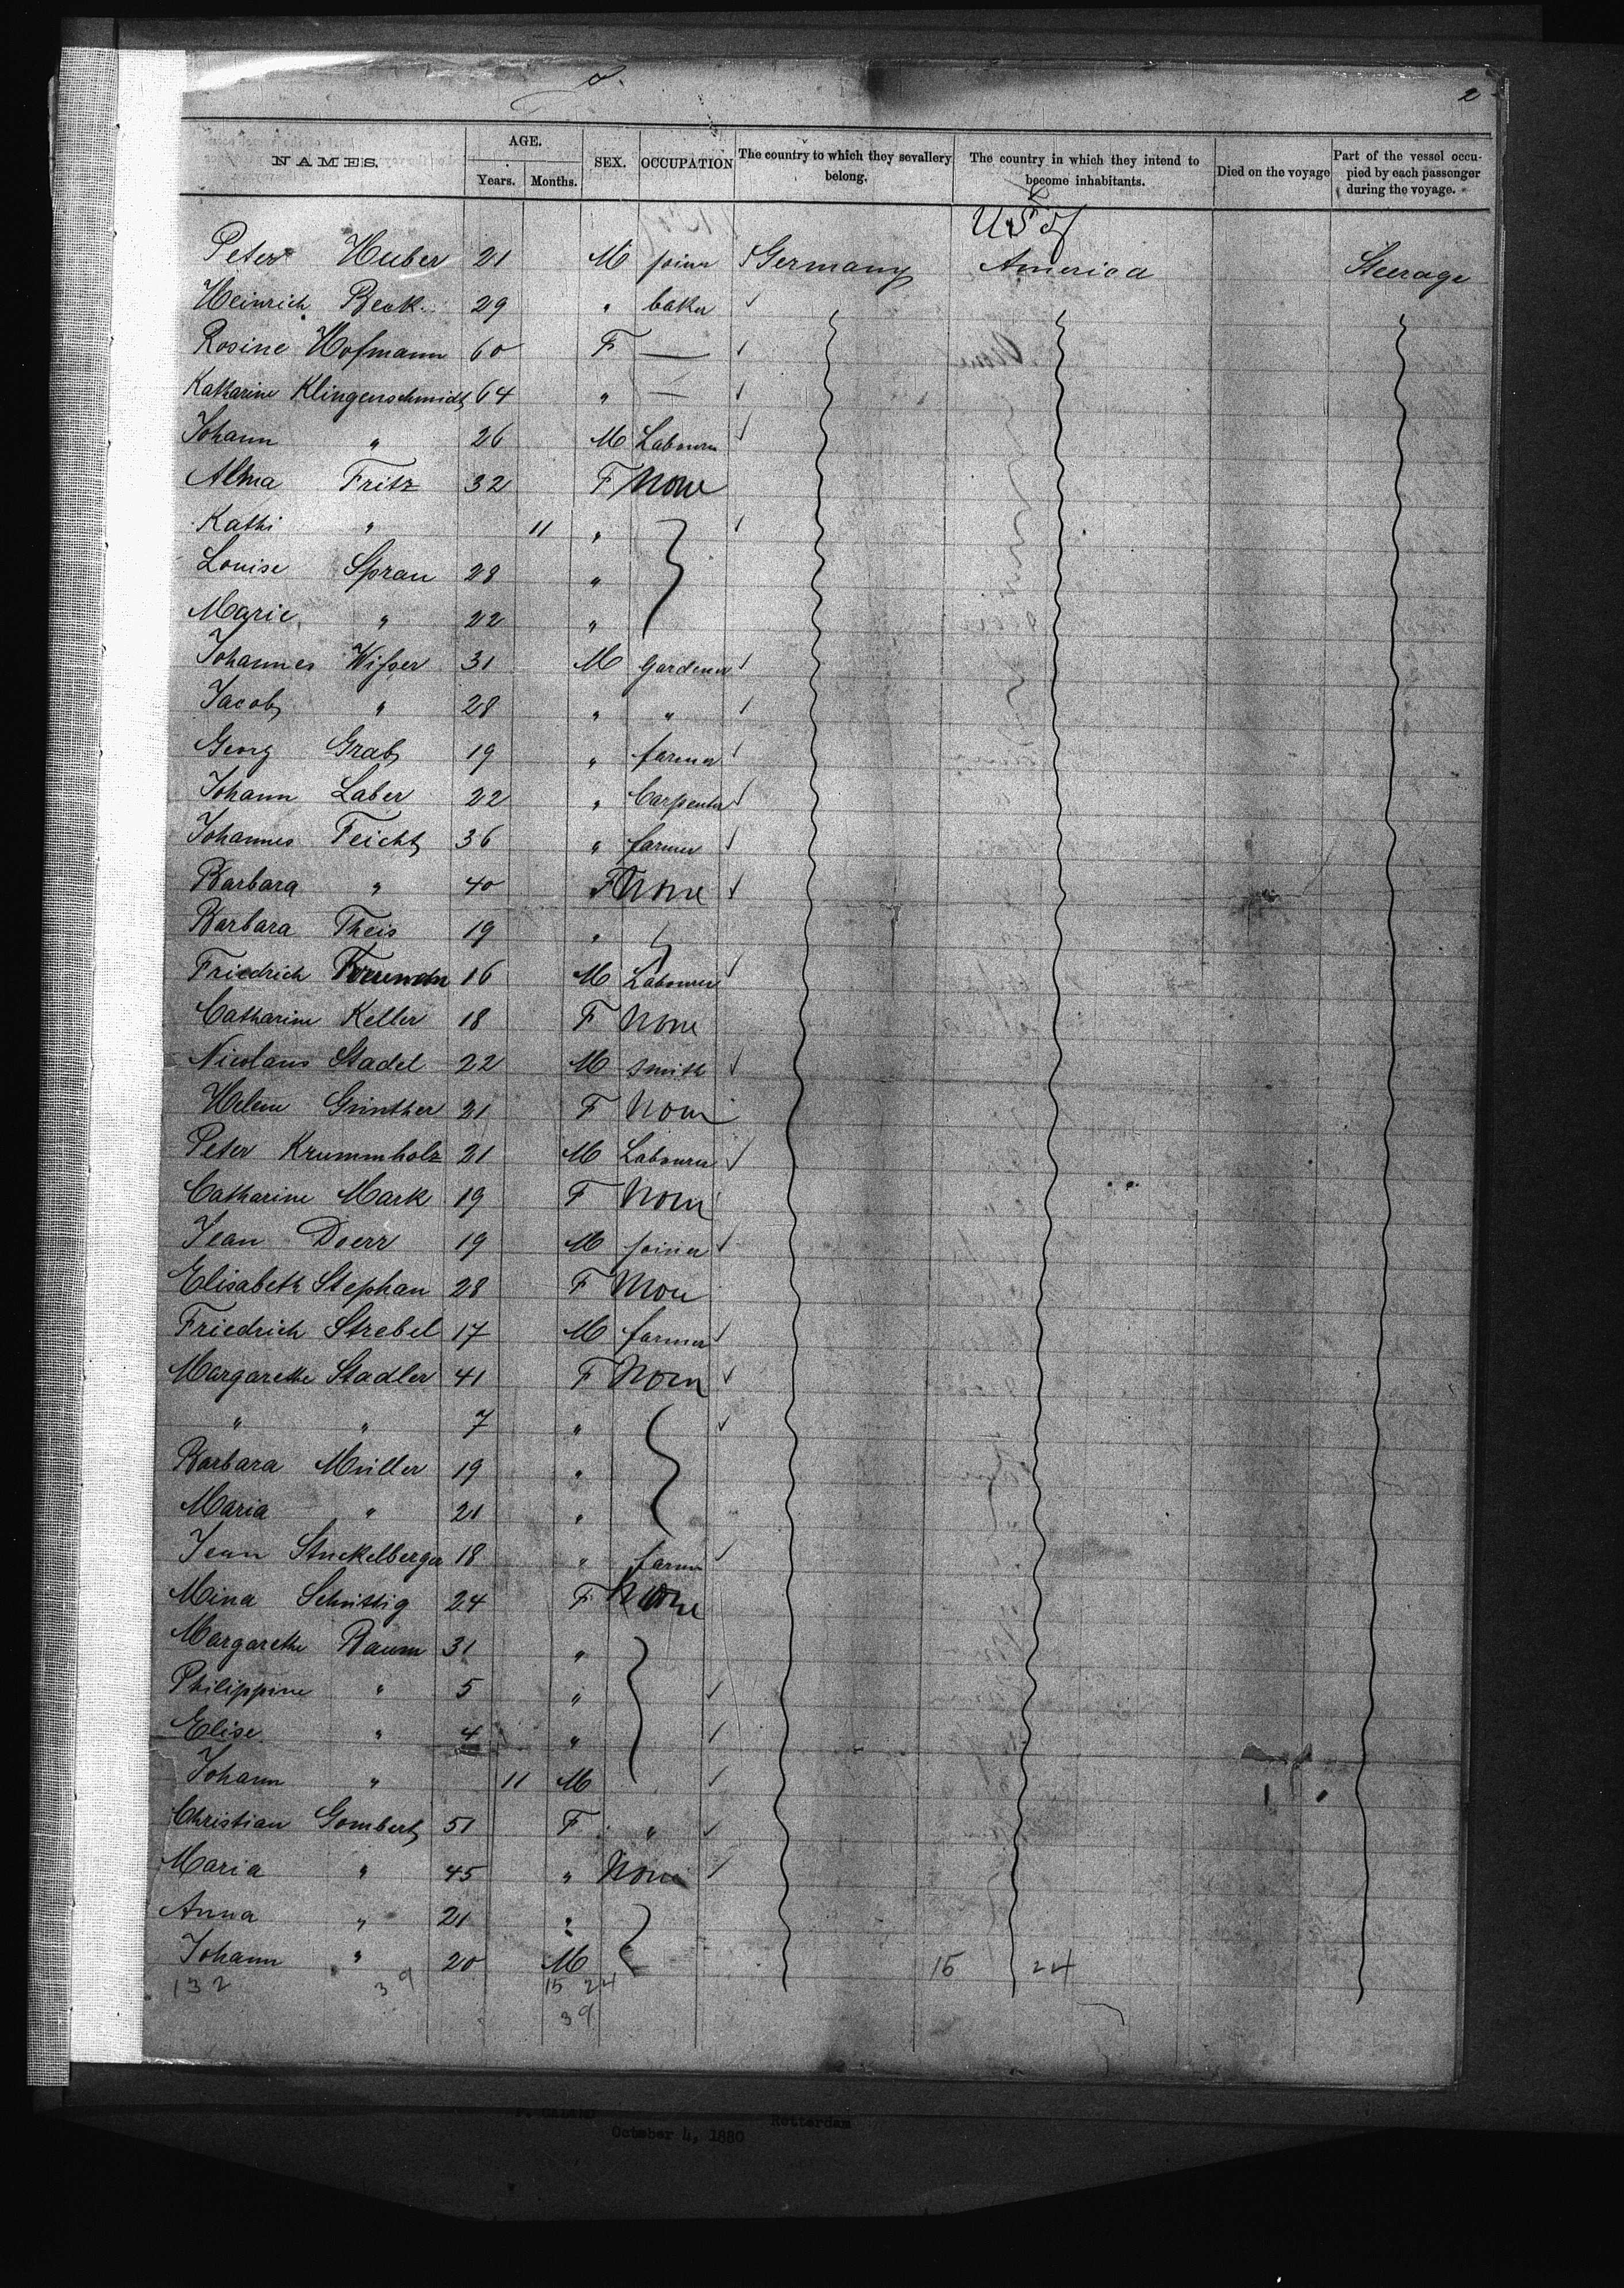 2
NAMES. AGE. Years. Months. SEX. OCCUPATION The country to which they sevallery belong. The country in which they intend to become inhabitants. Died on the voyage Part of the vessel occupied by each passenger during the voyage.
Peter Huber 21 M joiner Germany U S of America Steerage
Heinrich Beck 29 " baker
Rosine Hofmann 60 F —
Katharine Klingenschmidt 64 " —
Johann " 26 M Labourer
Alma Fritz 32 F None
Kathi " 11 "
Louise Sprau 28 "
Marie " 22 "
Johannes Wisser 31 M gardener
Jacob " 28 " "
Georg Grab 19 " farmer
Johann Laber 22 " Carpenter
Johannes Feicht 36 " farmer
Barbara " 40 F None
Barbara Theis 19 "
Friedrich 16 M Labourer
Catharine Keller 18 F None
Nicolaus Stadel 22 M smith
Helene Günther 21 F None
Peter Krummholz 21 M Labourer
Catharine Mark 19 F None
Jean Doerr 19 M joiner
Elisabeth Stephan 28 F None
Friedrich Strebel 17 M farmer
Margarethe Stadler 41 F None
" " 7 "
Barbara Müller 19 "
Maria " 21 "
Jean Stuckelberger 18 " farmer
Mina Schittig 24 F None
Margarethe Baum 31 "
Philippine " 5 "
Elise " 4 "
Johann " 11 M
Christian Gombert 51 F "
Maria " 45 " None
Anna " 21 "
Johann " 20 M 15 24
132 39 15 24
39
Rotterdam
October 4, 1880